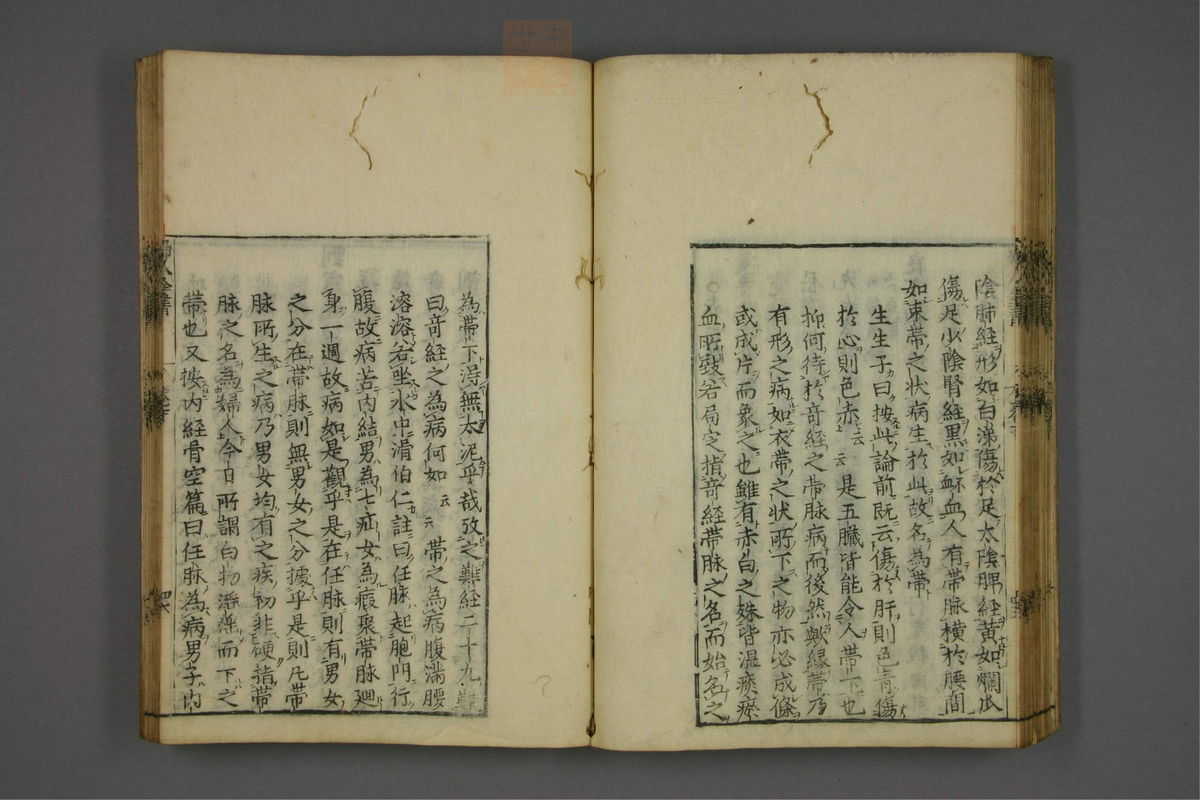 陰肺經形如白涕傷於足太陰脾經黃如爛瓜
傷足少陰腎經黑如衃血人有帶脉橫於腰間
如束帶之状病生於此故名為帶
生生子曰按此論前既云傷於肝則色青傷
於心則色赤云云是五臟皆能令人帶下也
抑何待於奇經之帶脉病而後然歟緣帶乃
有形之病如衣帶之状所下之物亦必成條
或成片而象之也雖有赤白之殊皆濕痰瘀
血所致若局定指奇經帶脉之名而始名之
為帶下淂無太泥乎哉攷之難經二十九難
曰奇經之為病何如云云帶之為病腹滿腰
溶溶若坐水中滑伯仁註曰任脉起胞門行
腹故病苦内結男為七疝女為瘕聚帶脉廻
身一週故病如是觀乎是在任脉則有男女
之分在帶脉則無男女之分據乎是則凡帶
脉所生之病乃男女均有之疾初非硬指帶
脉之名為婦人今日所謂白物滛而下之
帶也又按内經骨空篇曰任脉為病男子内